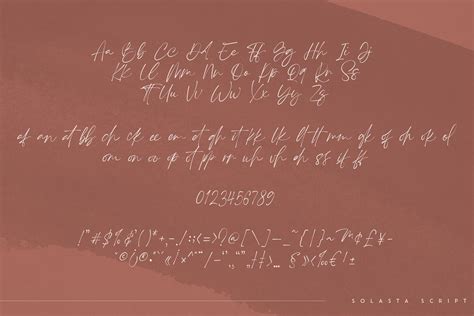 Aa Bb Cc Dd Ee Ff Gg Hh Ii Jj
Kk Ll Mm Nn Oo Pp Qq Rr Ss
Tt Uu Vv Ww Xx Yy Zz
af an at bb ch ck ee em et gh it kk lk ll tt mm of ch ok el
om on oo op ot pp rr uh ih oh ss st ff
0123456789
!"#$%&'()*+,-./:;<=>?@[\]
SOLASTA SCRIPT